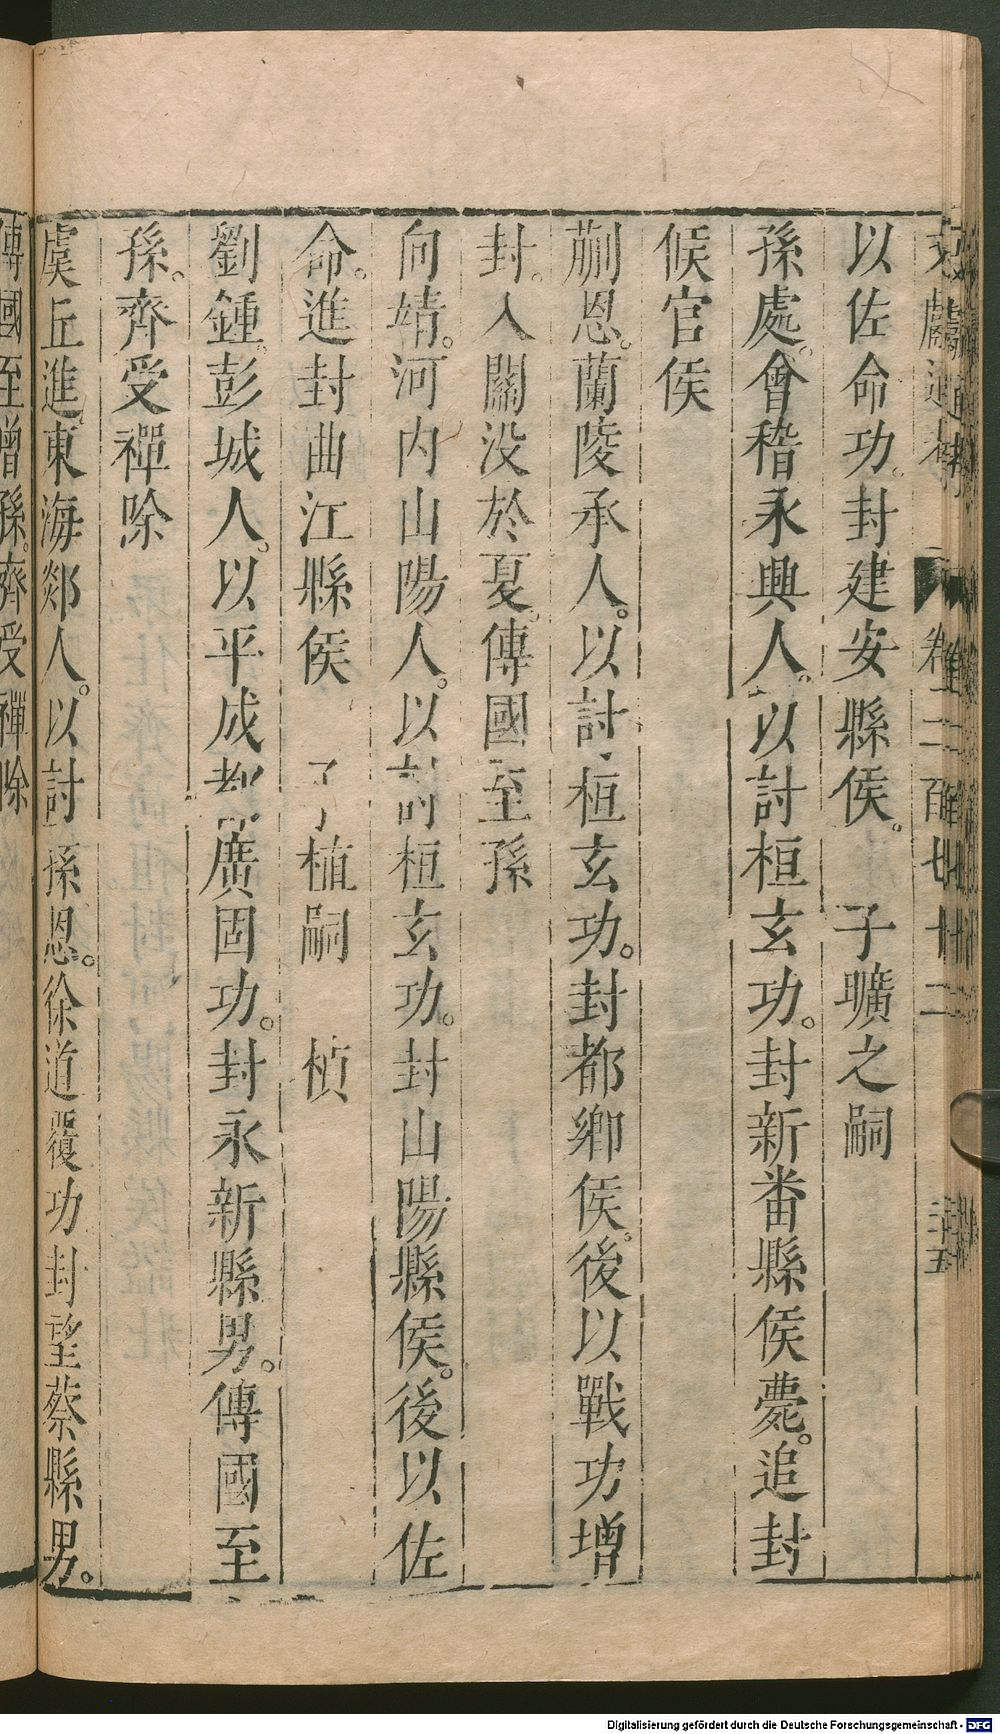 文獻通考 卷二百七十二 三十五
以佐命功。封建安縣侯。 子曠之嗣
孫處。會稽永興人。以討桓玄功。封新番縣侯薨。追封
候官侯
蒯恩。蘭陵承人。以討桓玄功。封都鄉侯。後以戰功增
封。入關没於夏。傳國至孫
向靖。河内山陽人。以討桓玄功。封山陽縣侯。後以佐
命。進封曲江縣侯 子植嗣 楨
劉鍾。彭城人。以平成都廣固功。封永新縣男。傳國至
孫。齊受禪除
虞丘進。東海郯人。以討孫恩。徐道覆功封望蔡縣男。
傳國至曾孫。齊受禪除
Digitalisierung gefördert durch die Deutsche Forschungsgemeinschaft - DFG